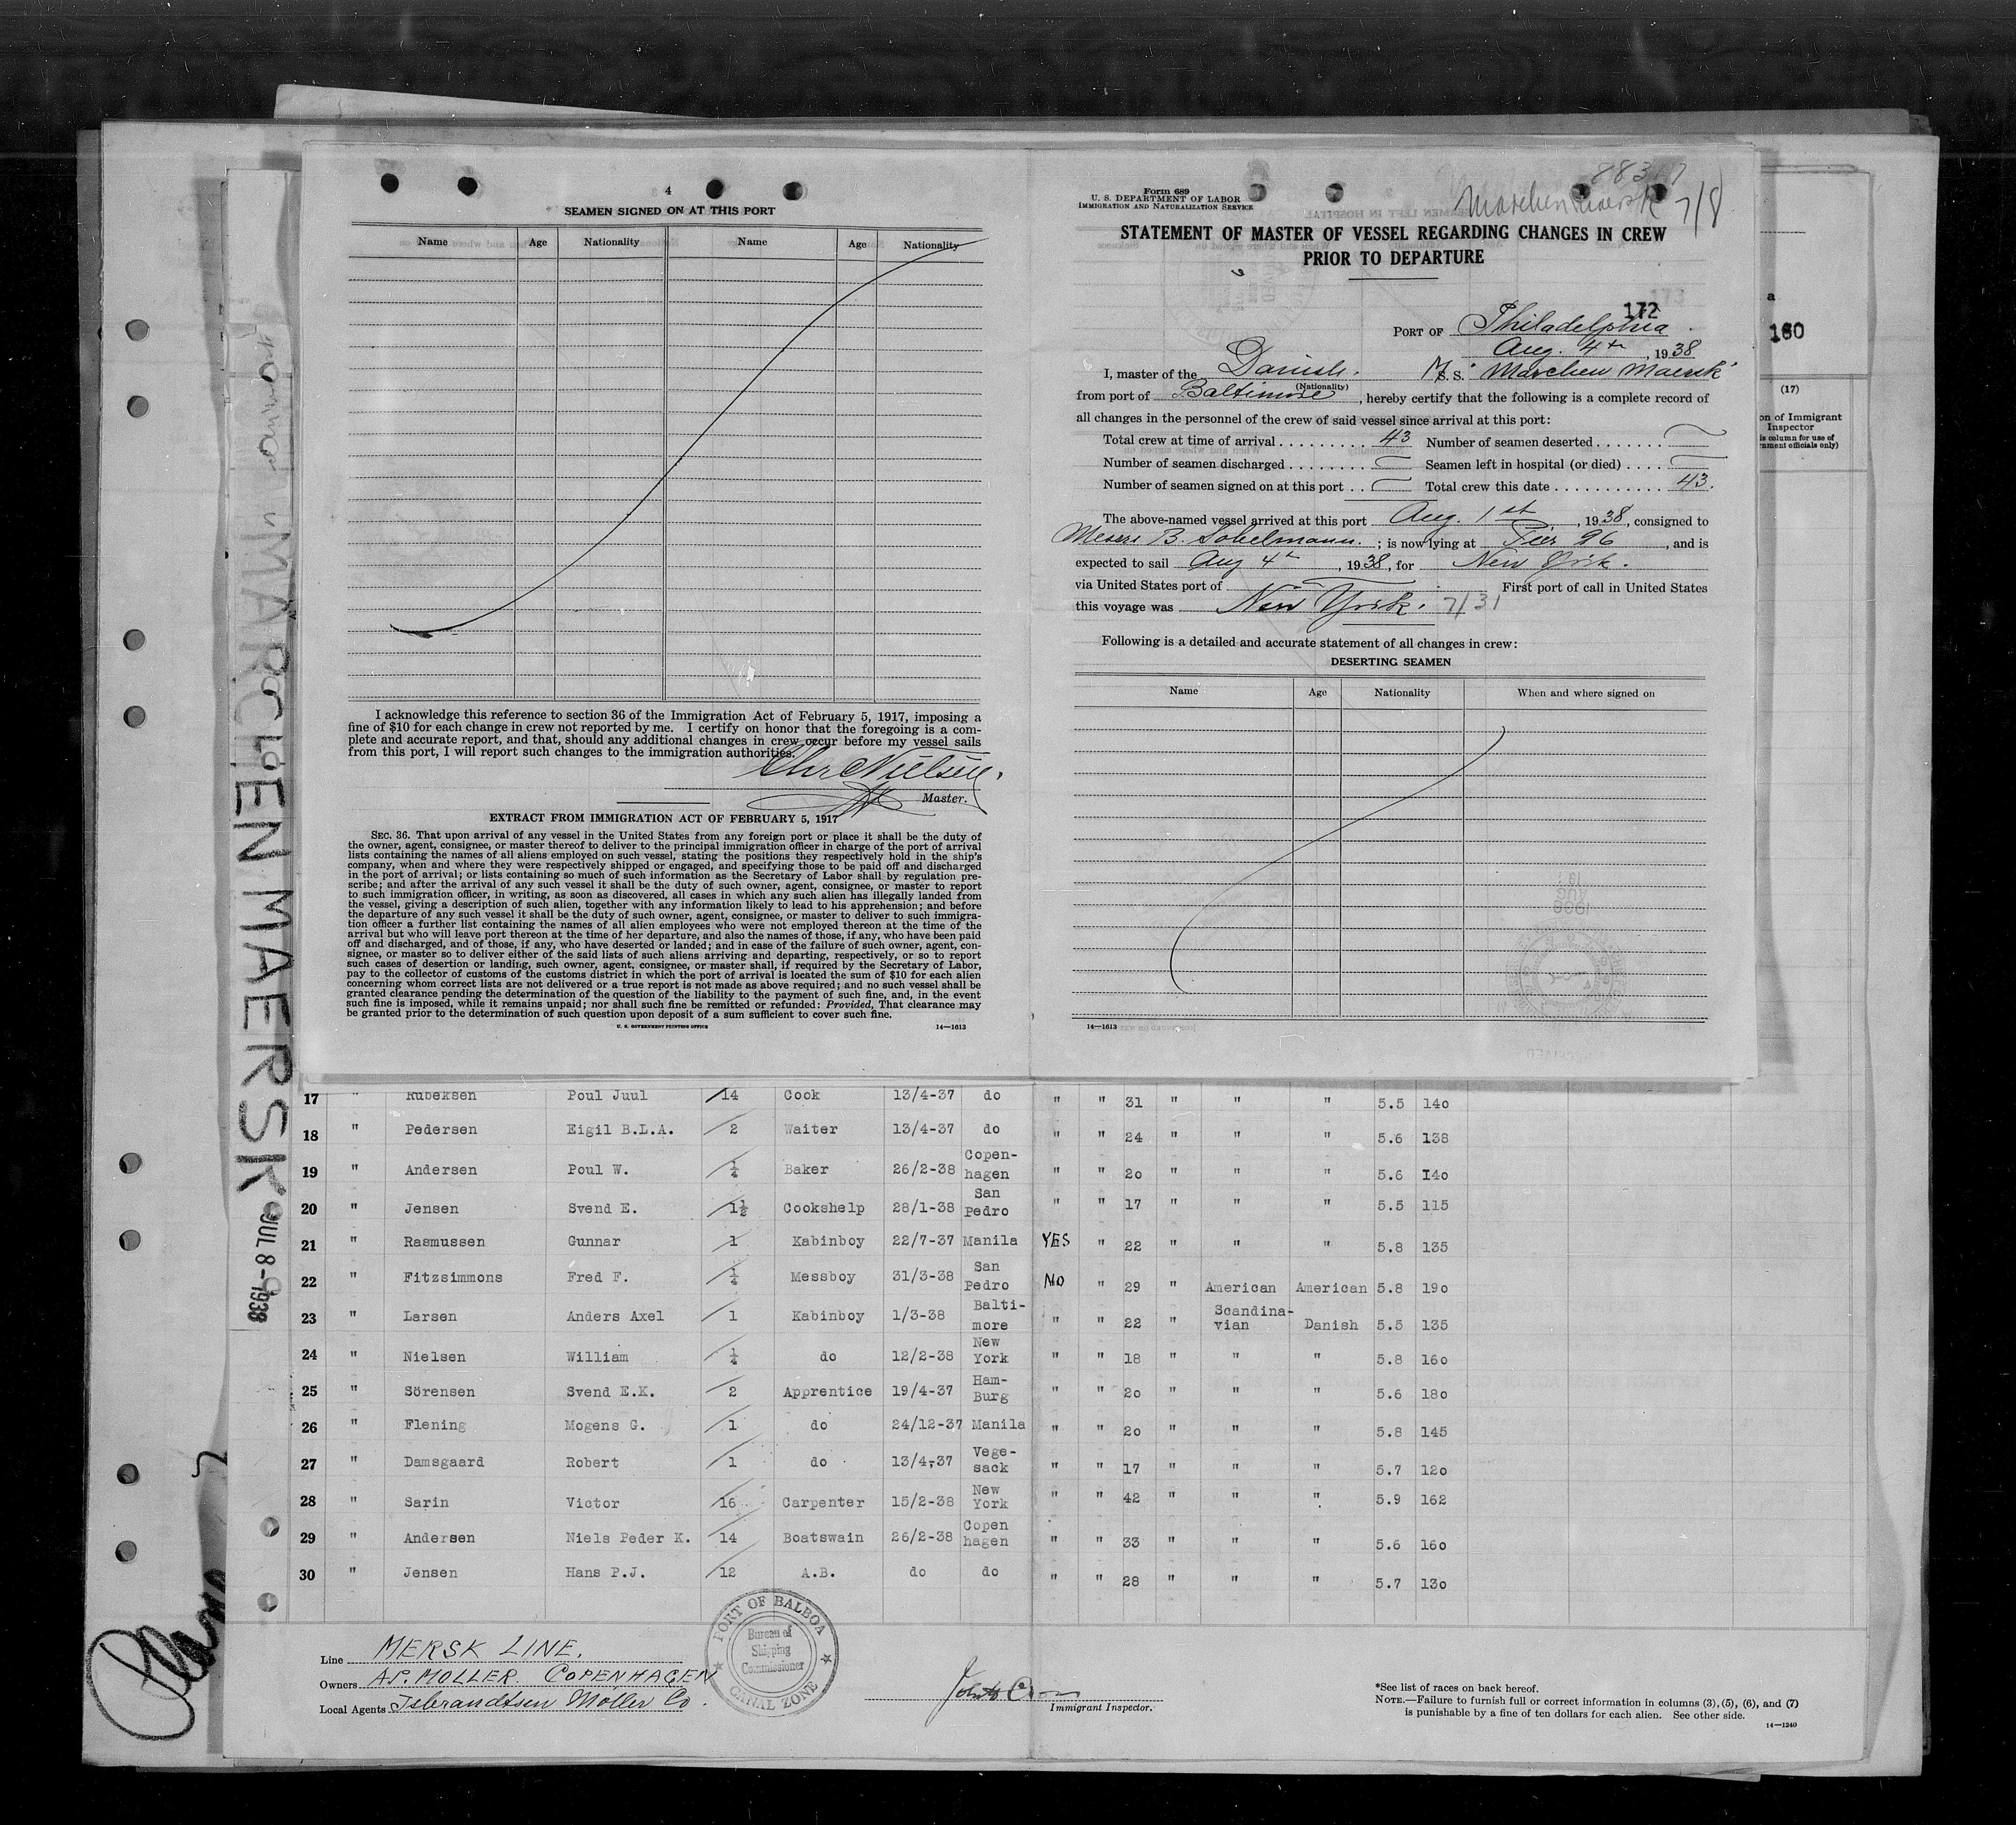 4
SEAMEN SIGNED ON AT THIS PORT
Name Age Nationality Name Age Nationality
I acknowledge this reference to section 36 of the Immigration Act of February 5, 1917, imposing a
fine of $10 for each change in crew not reported by me. I certify on honor that the foregoing is a com-
plete and accurate report, and that, should any additional changes in crew occur before my vessel sails
from this port, I will report such changes to the immigration authorities.
Chr Nielsen
Master.
EXTRACT FROM IMMIGRATION ACT OF FEBRUARY 5, 1917
SEC. 36. That upon arrival of any vessel in the United States from any foreign port or place it shall be the duty of
the owner, agent, consignee, or master thereof to deliver to the principal immigration officer in charge of the port of arrival
lists containing the names of all aliens employed on such vessel, stating the positions they respectively hold in the ship's
company, when and where they were respectively shipped or engaged, and specifying those to be paid off and discharged
in the port of arrival; or lists containing so much of such information as the Secretary of Labor shall by regulation pre-
scribe; and after the arrival of any such vessel it shall be the duty of such owner, agent, consignee, or master to report
to such immigration officer, in writing, as soon as discovered, all cases in which any such alien has illegally landed from
the vessel, giving a description of such alien, together with any information likely to lead to his apprehension; and before
the departure of any such vessel it shall be the duty of such owner, agent, consignee, or master to deliver to such immigra-
tion officer a further list containing the names of all alien employees who were not employed thereon at the time of the
arrival but who will leave port thereon at the time of her departure, and also the names of those, if any, who have been paid
off and discharged, and of those, if any, who have deserted or landed; and in case of the failure of such owner, agent, con-
signee, or master so to deliver either of the said lists of such aliens arriving and departing, respectively, or so to report
such cases of desertion or landing, such owner, agent, consignee, or master shall, if required by the Secretary of Labor,
pay to the collector of customs of the customs district in which the port of arrival is located the sum of $10 for each alien
concerning whom correct lists are not delivered or a true report is not made as above required; and no such vessel shall be
granted clearance pending the determination of the question of the liability to the payment of such fine, and, in the event
such fine is imposed, while it remains unpaid; nor shall such fine be remitted or refunded: Provided, That clearance may
be granted prior to the determination of such question upon deposit of a sum sufficient to cover such fine.
U. S. GOVERNMENT PRINTING OFFICE 14—1613
Form 689
U. S. DEPARTMENT OF LABOR
IMMIGRATION AND NATURALIZATION SERVICE
Marchen Maersk 7/8
STATEMENT OF MASTER OF VESSEL REGARDING CHANGES IN CREW
PRIOR TO DEPARTURE
172
PORT OF Philadelphia
Aug. 4th, 1938
I, master of the Danish. M S. S. "Marchen Maersk"
(Nationality)
from port of Baltimore, hereby certify that the following is a complete record of
all changes in the personnel of the crew of said vessel since arrival at this port:
Total crew at time of arrival 43 Number of seamen deserted
Number of seamen discharged Seamen left in hospital (or died)
Number of seamen signed on at this port Total crew this date 43.
The above-named vessel arrived at this port Aug. 1st, 1938, consigned to
Messrs B. Sobelmann.; is now lying at Pier 96, and is
expected to sail Aug 4th, 1938, for New York.
via United States port of First port of call in United States
this voyage was New York. 7/31
Following is a detailed and accurate statement of all changes in crew:
DESERTING SEAMEN
Name Age Nationality When and where signed on
14—1613
a
160
(17)
on of Immigrant
Inspector
is column for use of
rnment officials only)
MARCHEN MAERSK
JUL 8-1938
17 " Rubeksen Poul Juul 14 Cook 13/4-37 do " " 31 " " " 5.5 140
18 " Pedersen Eigil B.L.A. 2 Waiter 13/4-37 do " " 24 " " " 5.6 138
19 " Andersen Poul W. ¼ Baker 26/2-38 Copen-hagen " " 20 " " " 5.6 140
20 " Jensen Svend E. 1½ Cookshelp 28/1-38 San Pedro " " 17 " " " 5.5 115
21 " Rasmussen Gunnar 1 Kabinboy 22/7-37 Manila YES " 22 " " " 5.8 135
22 " Fitzsimmons Fred F. ¼ Messboy 31/3-38 San Pedro NO " 29 " American American 5.8 190
23 " Larsen Anders Axel 1 Kabinboy 1/3-38 Balti-more " " 22 " Scandina-vian Danish 5.5 135
24 " Nielsen William ¼ do 12/2-38 New York " " 18 " " " 5.8 160
25 " Sörensen Svend E.K. 2 Apprentice 19/4-37 Ham-Burg " " 20 " " " 5.6 180
26 " Flening Mogens G. 1 do 24/12-37 Manila " " 20 " " " 5.8 145
27 " Damsgaard Robert 1 do 13/4,37 Vege-sack " " 17 " " " 5.7 120
28 " Sarin Victor 16 Carpenter 15/2-38 New York " " 42 " " " 5.9 162
29 " Andersen Niels Peder K. 14 Boatswain 26/2-38 Copen hagen " " 33 " " " 5.6 160
30 " Jensen Hans P.J. 12 A.B. do do " " 28 " " " 5.7 130
Line MERSK LINE.
Owners A.P. MOLLER. COPENHAGEN
Local Agents Isbrandtsen Moller Co.
PORT OF BALBOA
Bureau of
Shipping
Commissioner
CANAL ZONE
Immigrant Inspector.
*See list of races on back hereof.
NOTE.—Failure to furnish full or correct information in columns (3), (5), (6), and (7)
is punishable by a fine of ten dollars for each alien. See other side.
14—1240